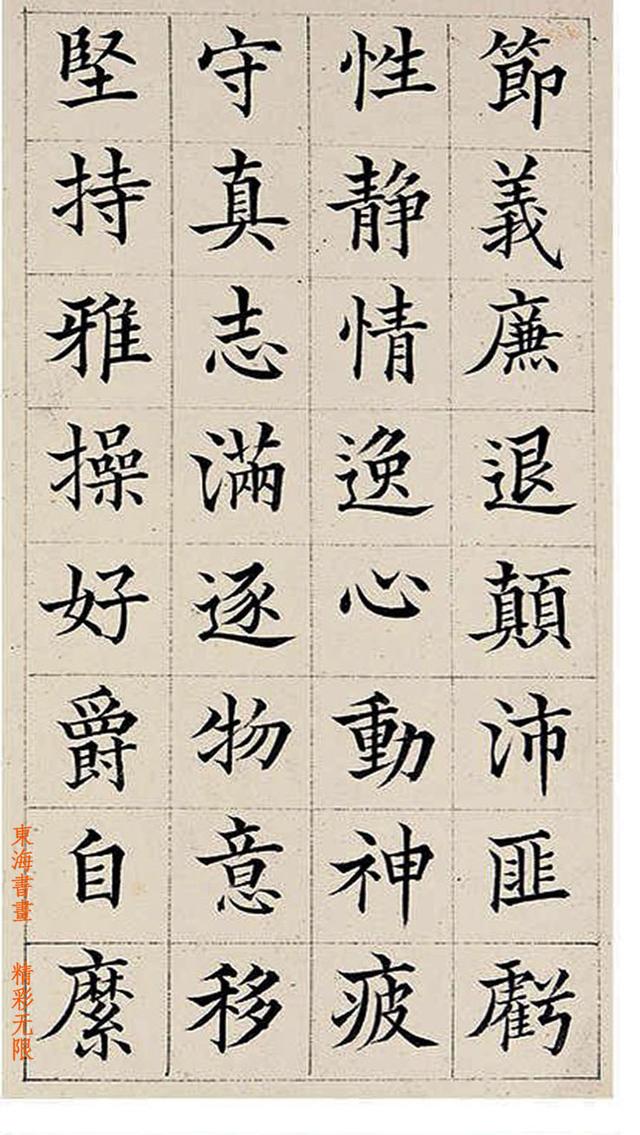 節義廉退顛沛匪虧
性静情逸心動神疲
守真志滿逐物意移
堅持雅操好爵自縻
東海書畫 精彩无限